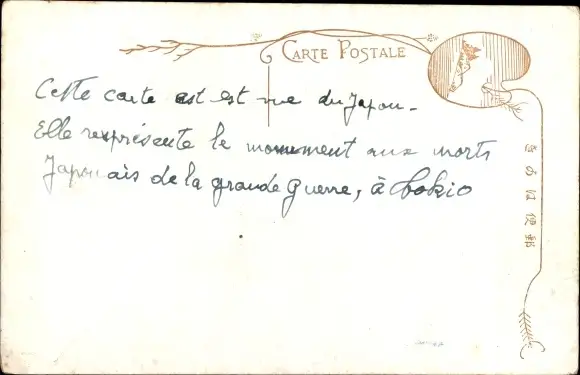 CARTE POSTALE
Cette carte est est vue du Japon -
Elle représente le monument aux morts
Japonais de la grande guerre, à Tokio
きがは便郵